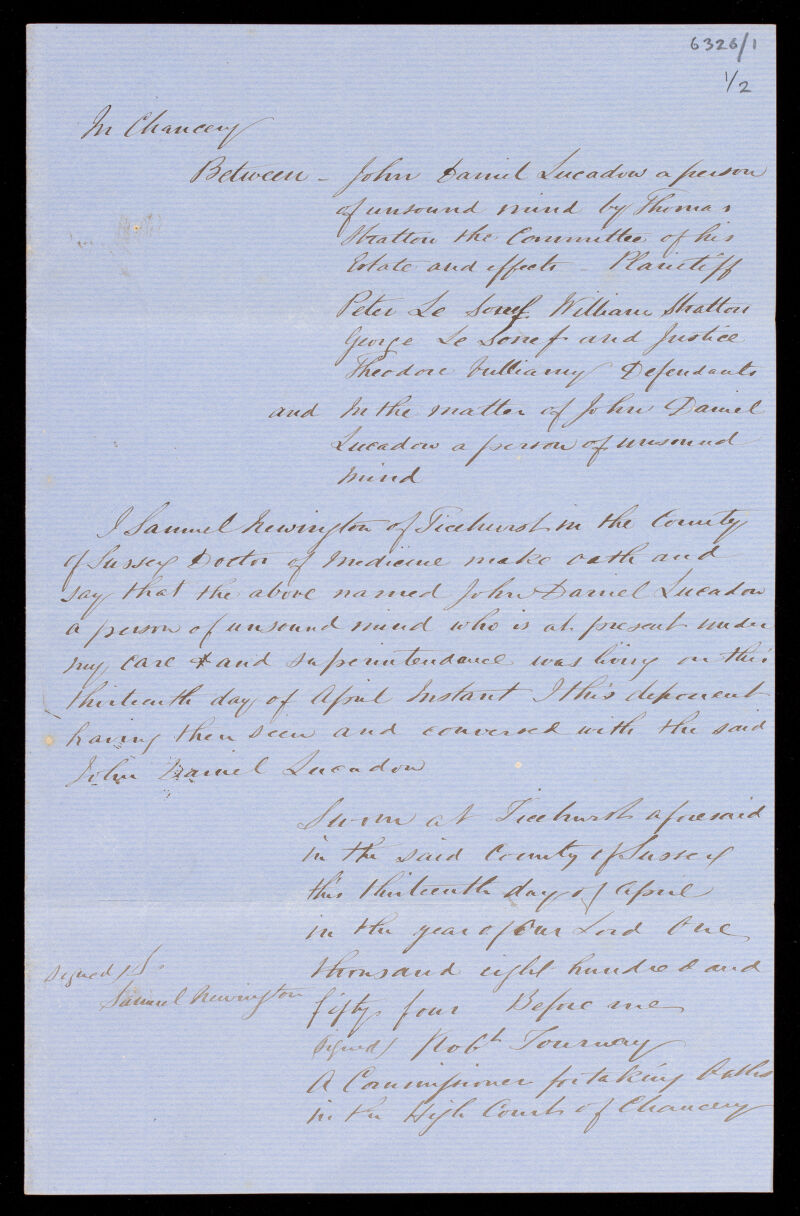 6326/1
1/2
In Chancery
Between - John Daniel Lucadow a person
of unsound mind by Thomas
Stratton the Committee of his
Estate and effects Plaintiff
Peter Le William Stratton
George Le and Justice
Theodore Vulliamy Defendants
and In the matter of John Daniel
Lucadow a person of unsound
mind
I Samuel Newington of Ticehurst in the County
of Sussex Doctor of Medicine make oath and
say that the above named John Daniel Lucadow
a person of unsound mind who is at present under
my care and superintendence was living on this
thirteenth day of April Instant I this deponent
having then seen and conversed with the said
John Daniel Lucadow
Sworn at Ticehurst aforesaid
in the said County of Sussex
this thirteenth day of April
in the year of Our Lord One
thousand eight hundred and
signed
Samuel Newington
fifty four Before me
signed) Robt Tournay
A Commissioner for taking Oaths
in the High Court of Chancery